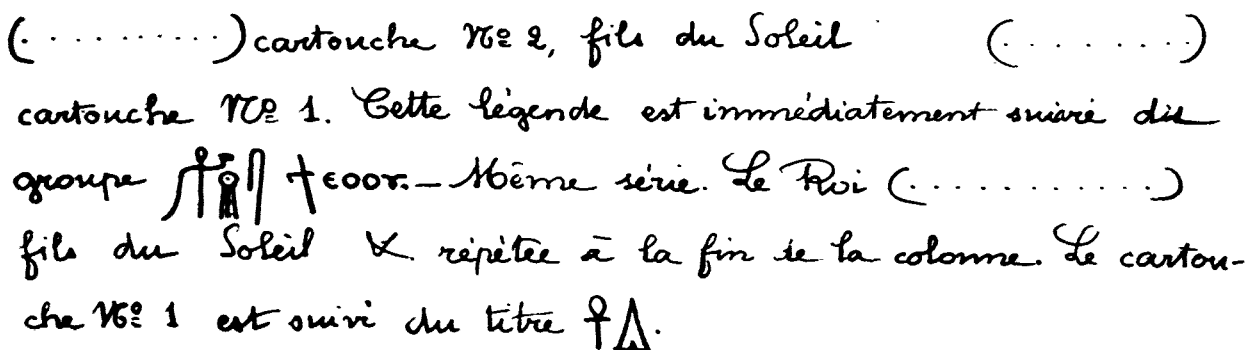 (. . . . . . . . . .) cartouche Nº 2, fils du Soleil (. . . . . . . .)
cartouche Nº 1. Cette légende est immédiatement suivie du
groupe ϯⲉⲟⲟⲩ. — Même série. Le Roi (. . . . . . . . . . . .)
fils du Soleil &. répétée à la fin de la colonne. Le cartou-
che Nº 1 est suivi du titre 𓋹𓏙.